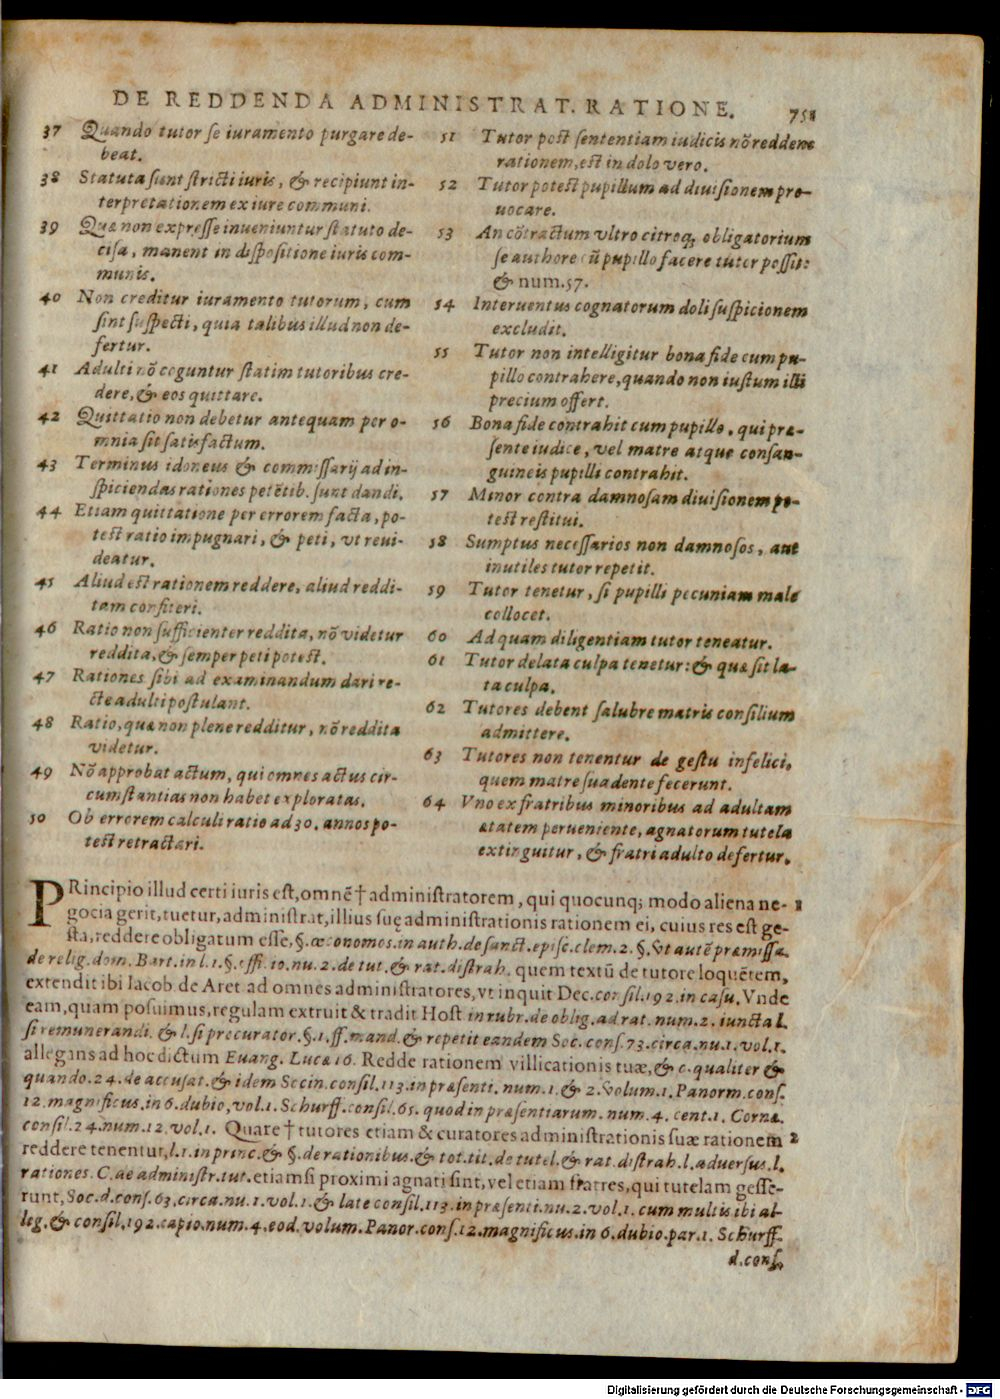 DE REDDENDA ADMINISTRAT. RATIONE. 751
37 Quando tutor se iuramento purgare de-
beat.
38 Statuta sunt stricti iuris, & recipiunt in-
terpretationem ex iure communi.
39 Quæ non expresse inueniuntur statuto de-
cisa, manent in dispositione iuris com-
munis.
40 Non creditur iuramento tutorum, cum
sint suspecti, quia talibus illud non de-
fertur.
41 Adulti nõ coguntur statim tutoribus cre-
dere, & eos quittare.
42 Quittatio non debetur antequam per o-
mnia sit satisfactum.
43 Terminus idoneus & commissarij ad in-
spiciendas rationes petētib. sunt dandi.
44 Etiam quittatione per errorem facta, po-
test ratio impugnari, & peti, vt reui-
deatur.
45 Aliud est rationem reddere, aliud reddi-
tam confiteri.
46 Ratio non sufficienter reddita, nõ videtur
reddita, & semper peti potest.
47 Rationes sibi ad examinandum dari re-
cte adulti postulant.
48 Ratio, quæ non plene redditur, nõ reddita
videtur.
49 Nõ approbat actum, qui omnes actus cir-
cumstantias non habet exploratas.
50 Ob errorem calculi ratio ad 30. annos po-
test retractari.
51 Tutor post sententiam iudicis nõ reddens
rationem, est in dolo vero.
52 Tutor potest pupillum ad diuisionem pro-
uocare.
53 An cõtractum vltro citroq; obligatorium
se authore cũ pupillo facere tutor possit:
& num. 57.
54 Interuentus cognatorum doli suspicionem
excludit.
55 Tutor non intelligitur bona fide cum pu-
pillo contrahere, quando non iustum illi
precium offert.
56 Bona fide contrahit cum pupillo, qui præ-
sente iudice, vel matre atque consan-
guineis pupilli contrahit.
57 Minor contra damnosam diuisionem po-
test restitui.
58 Sumptus necessarios non damnosos, aut
inutiles tutor repetit.
59 Tutor tenetur, si pupilli pecuniam male
collocet.
60 Ad quam diligentiam tutor teneatur.
61 Tutor de lata culpa tenetur: & quæ sit la-
ta culpa.
62 Tutores debent salubre matris consilium
admittere.
63 Tutores non tenentur de gestu infelici,
quem matre suadente fecerunt.
64 Vno ex fratribus minoribus ad adultam
ætatem perueniente, agnatorum tutela
extinguitur, & fratri adulto defertur.
PRincipio illud certi iuris est, omnē † administratorem, qui quocunq; modo aliena ne- 1
gocia gerit, tuetur, administrat, illius suę administrationis rationem ei, cuius res est ge-
sta, reddere obligatum esse, §. œconomos. in auth. de sanct. episc. clem. 2. §. Vt autē præmissa.
de relig. dom. Bart. in l. 1. §. offi. 10. nu. 2. de tut. & rat. distrah. quem textũ de tutore loquētem,
extendit ibi Iacob. de Aret ad omnes administratores, vt inquit Dec. consil. 192. in casu. Vnde
eam, quam posuimus, regulam extruit & tradit Host in rubr. de oblig. ad rat. num. 2. iuncta l.
si remunerandi. & l. si procurator. §. 1. ff. mand. & repetit eandem Soc. cons. 73. circa. nu. 1. vol. 1.
allegans ad hoc dictum Euang. Lucæ 16. Redde rationem villicationis tuæ, & c. qualiter &
quando. 24. de accusat. & idem Socin. consil. 113. in præsenti. num. 1. & 2. Volum. 1. Panorm. cons.
12. magnificus. in 6. dubio, vol. 1. Schurff. consil. 65. quod in præsentiarum. num. 4. cent. 1. Corne.
consil. 24. num. 12. vol. 1. Quare † tutores etiam & curatores administrationis suæ rationem 2
reddere tenentur, l. 1. in princ. & §. de rationibus. & tot. tit. de tutel. & rat. distrah. l. aduersus. l.
rationes. C. de administr. tut. etiamsi proximi agnati sint, vel etiam fratres, qui tutelam gesse-
runt, Soc. d. cons. 63. circa. nu. 1. vol. 1. & late consil. 113. in præsenti. nu. 2. vol. 1. cum multis ibi al-
leg. & consil. 192. capio. num. 4. eod. volum. Panor. cons. 12. magnificus. in 6. dubio. par. 1. Schurff.
d. cons.
Digitalisierung gefördert durch die Deutsche Forschungsgemeinschaft - DFG